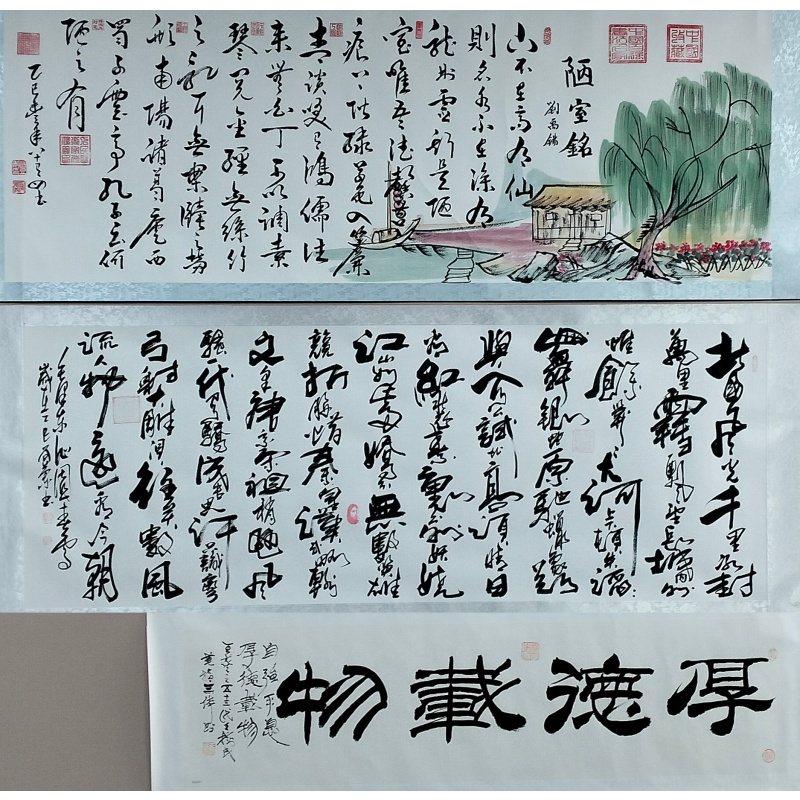 陋室銘
劉禹錫
山不在高有仙
則名水不在深有
龍則靈斯是陋
室唯吾德馨苔
痕上階綠草色入簾
青談笑有鴻儒往
來無白丁可以調素
琴閱金經無絲竹
之亂耳無案牘之勞
形南陽諸葛廬西
蜀子雲亭孔子云何
陋之有
北國風光千里冰封
萬里雪飄望長城內外
惟餘莽莽大河上下頓失滔滔
山舞銀蛇原馳蠟象欲
與天公試比高須晴日
看紅裝素裹分外妖嬈
江山如此多嬌引無數英雄
競折腰惜秦皇漢武略輸
文采唐宗宋祖稍遜風
騷一代天驕成吉思汗只識彎
弓射大雕俱往矣數風
流人物還看今朝
毛澤東沁園春雪
厚德載物
自強不息
厚德載物